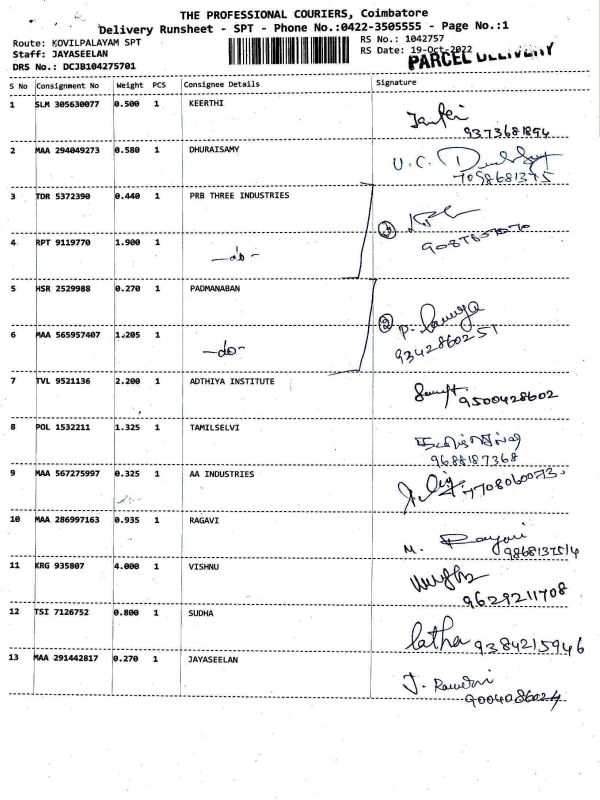 THE PROFESSIONAL COURIERS, Coimbatore
Delivery Runsheet - SPT - Phone No.:0422-3505555 - Page No.:1
Route: KOVILPALAYAM SPT
Staff: JAYASEELAN
DRS No.: DCJB104275701
RS No.: 1042757
RS Date: 19-Oct-2022
PARCEL DELIVERY
S No Consignment No Weight PCS Consignee Details Signature
1 SLM 305630077 0.500 1 KEERTHI
9373681854
2 MAA 294049273 0.580 1 DHURAISAMY
U.C.
7098681375
3 TDR 5372390 0.440 1 PRB THREE INDUSTRIES
②
4 RPT 9119770 1.900 1 -do-
5 HSR 2529988 0.270 1 PADMANABAN
② P.
9342860251
6 MAA 565957407 1.205 1 -do-
7 TVL 9521136 2.200 1 ADTHIYA INSTITUTE
9500428602
8 POL 1532211 1.325 1 TAMILSELVI
தமிழ்செல்வி
9688187368
9 MAA 567275997 0.325 1 AA INDUSTRIES
7708060073
10 MAA 286997163 0.935 1 RAGAVI
M.
9868137514
11 KRG 935807 4.000 1 VISHNU
9629211708
12 TSI 7126752 0.800 1 SUDHA
latha 9384215946
13 MAA 291442817 0.270 1 JAYASEELAN
J.
9004086024